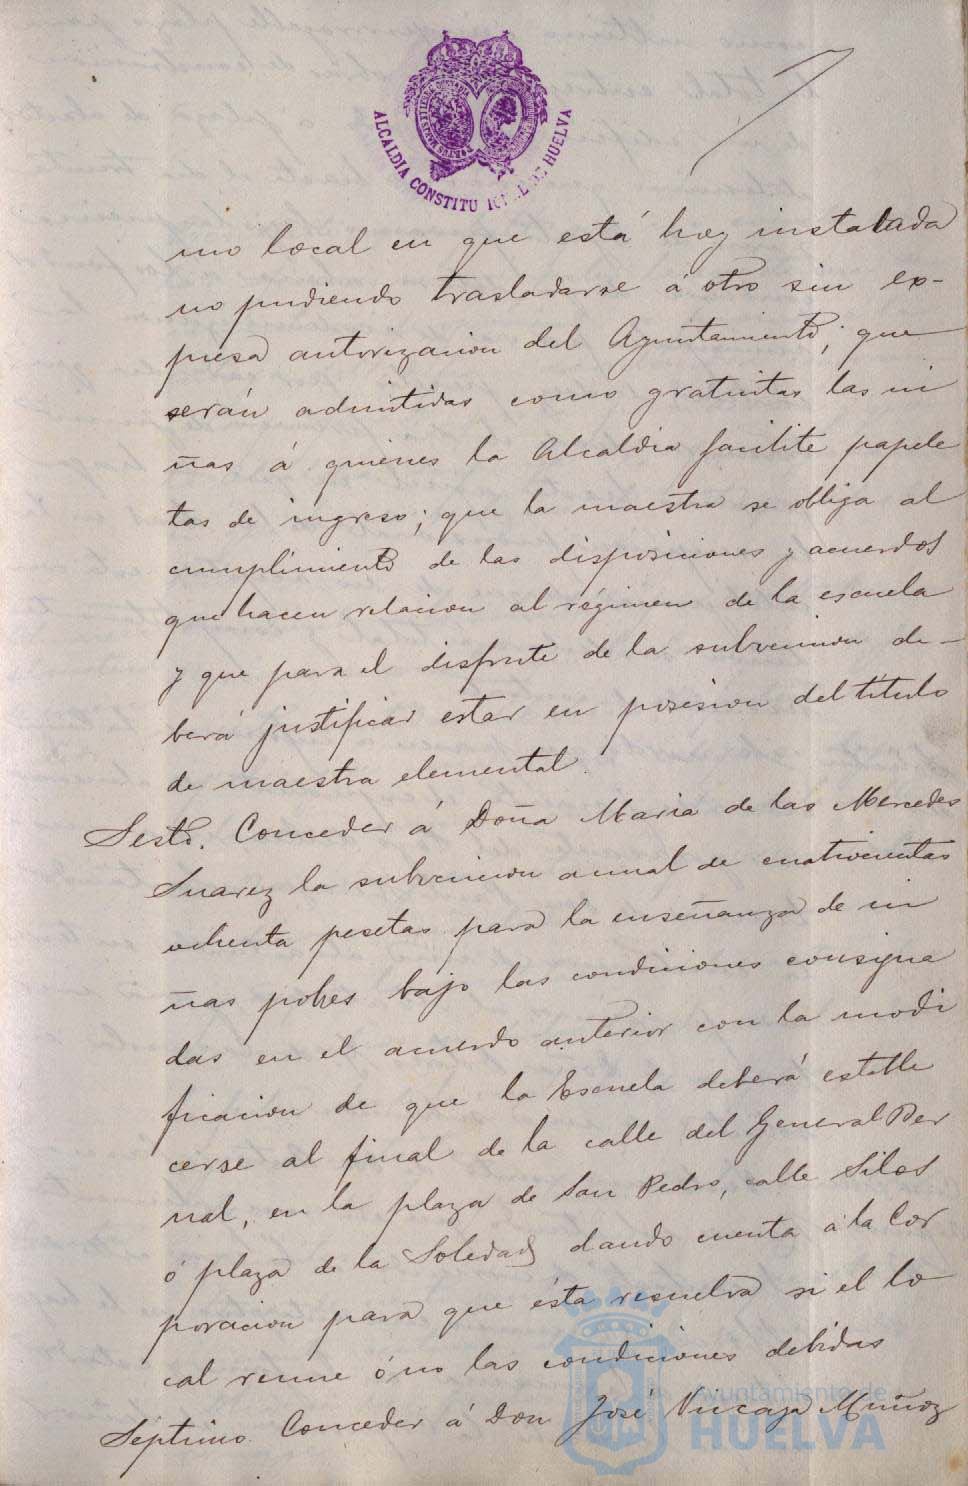 ALCALDIA CONSTITUCIONAL DE HUELVA
mo local en que está hoy instalada
no pudiendo trasladarse á otro sin ex-
presa autorizacion del Ayuntamiento; que
serán admitidas como gratuitas las ni
ñas á quienes la Alcaldia facilite papele
tas de ingreso; que la maestra se obliga al
cumplimiento de las disposiciones y acuerdos
que hacen relacion al régimen de la escuela
y que para el disfrute de la subvencion de-
berá justificar estar en posesion del titulo
de maestra elemental.
Sesto. Conceder á Doña Maria de las Mercedes
Suarez la subvencion anual de cuatrocientas
ochenta pesetas para la enseñanza de ni
ñas pobres bajo las condiciones consigna
das en el acuerdo anterior con la modi
ficacion de que la Escuela deberá estable
cerse al final de la calle del General Ber
nal, en la plaza de San Pedro, calle Silos
ó plaza de la Soledad dando cuenta á la Cor
poracion para que ésta resuelva si el lo
cal reune ó no las condiciones debidas
Séptimo Conceder á Don José Muñoz
Ayuntamiento de
HUELVA